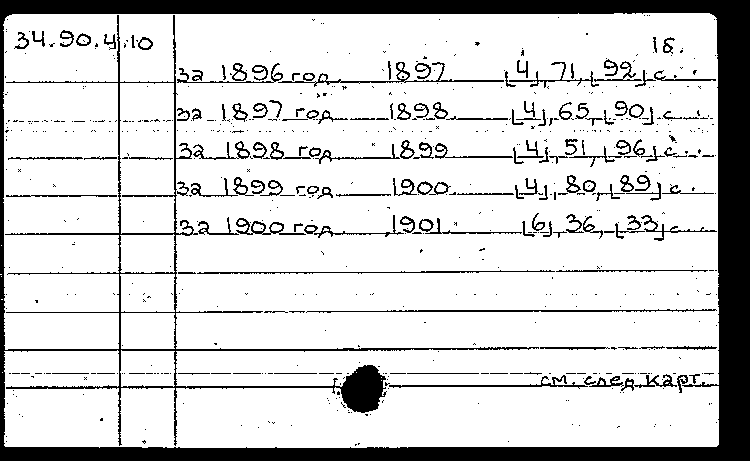 34.90.4.10
18.
за 1896 год. 1897. [4], 71, [92] с.
за 1897 год 1898. [4], 65, [90] с.
за 1898 год 1899 [4], 51, [96] с.
за 1899 год 1900. [4], 80, [89] с.
за 1900 год. 1901. [6], 36, [33] с.
см. след. карт.